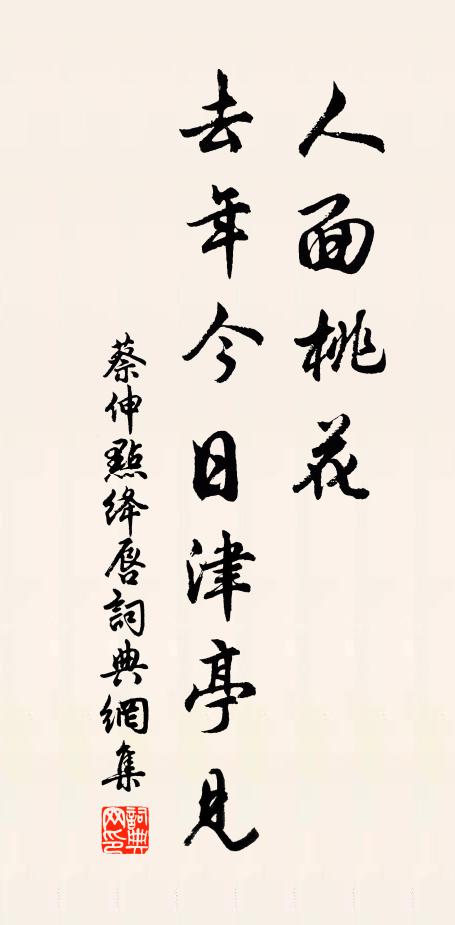 人面桃花
去年今日津亭見
蔡伸點絳唇詞典網集
詞典网印